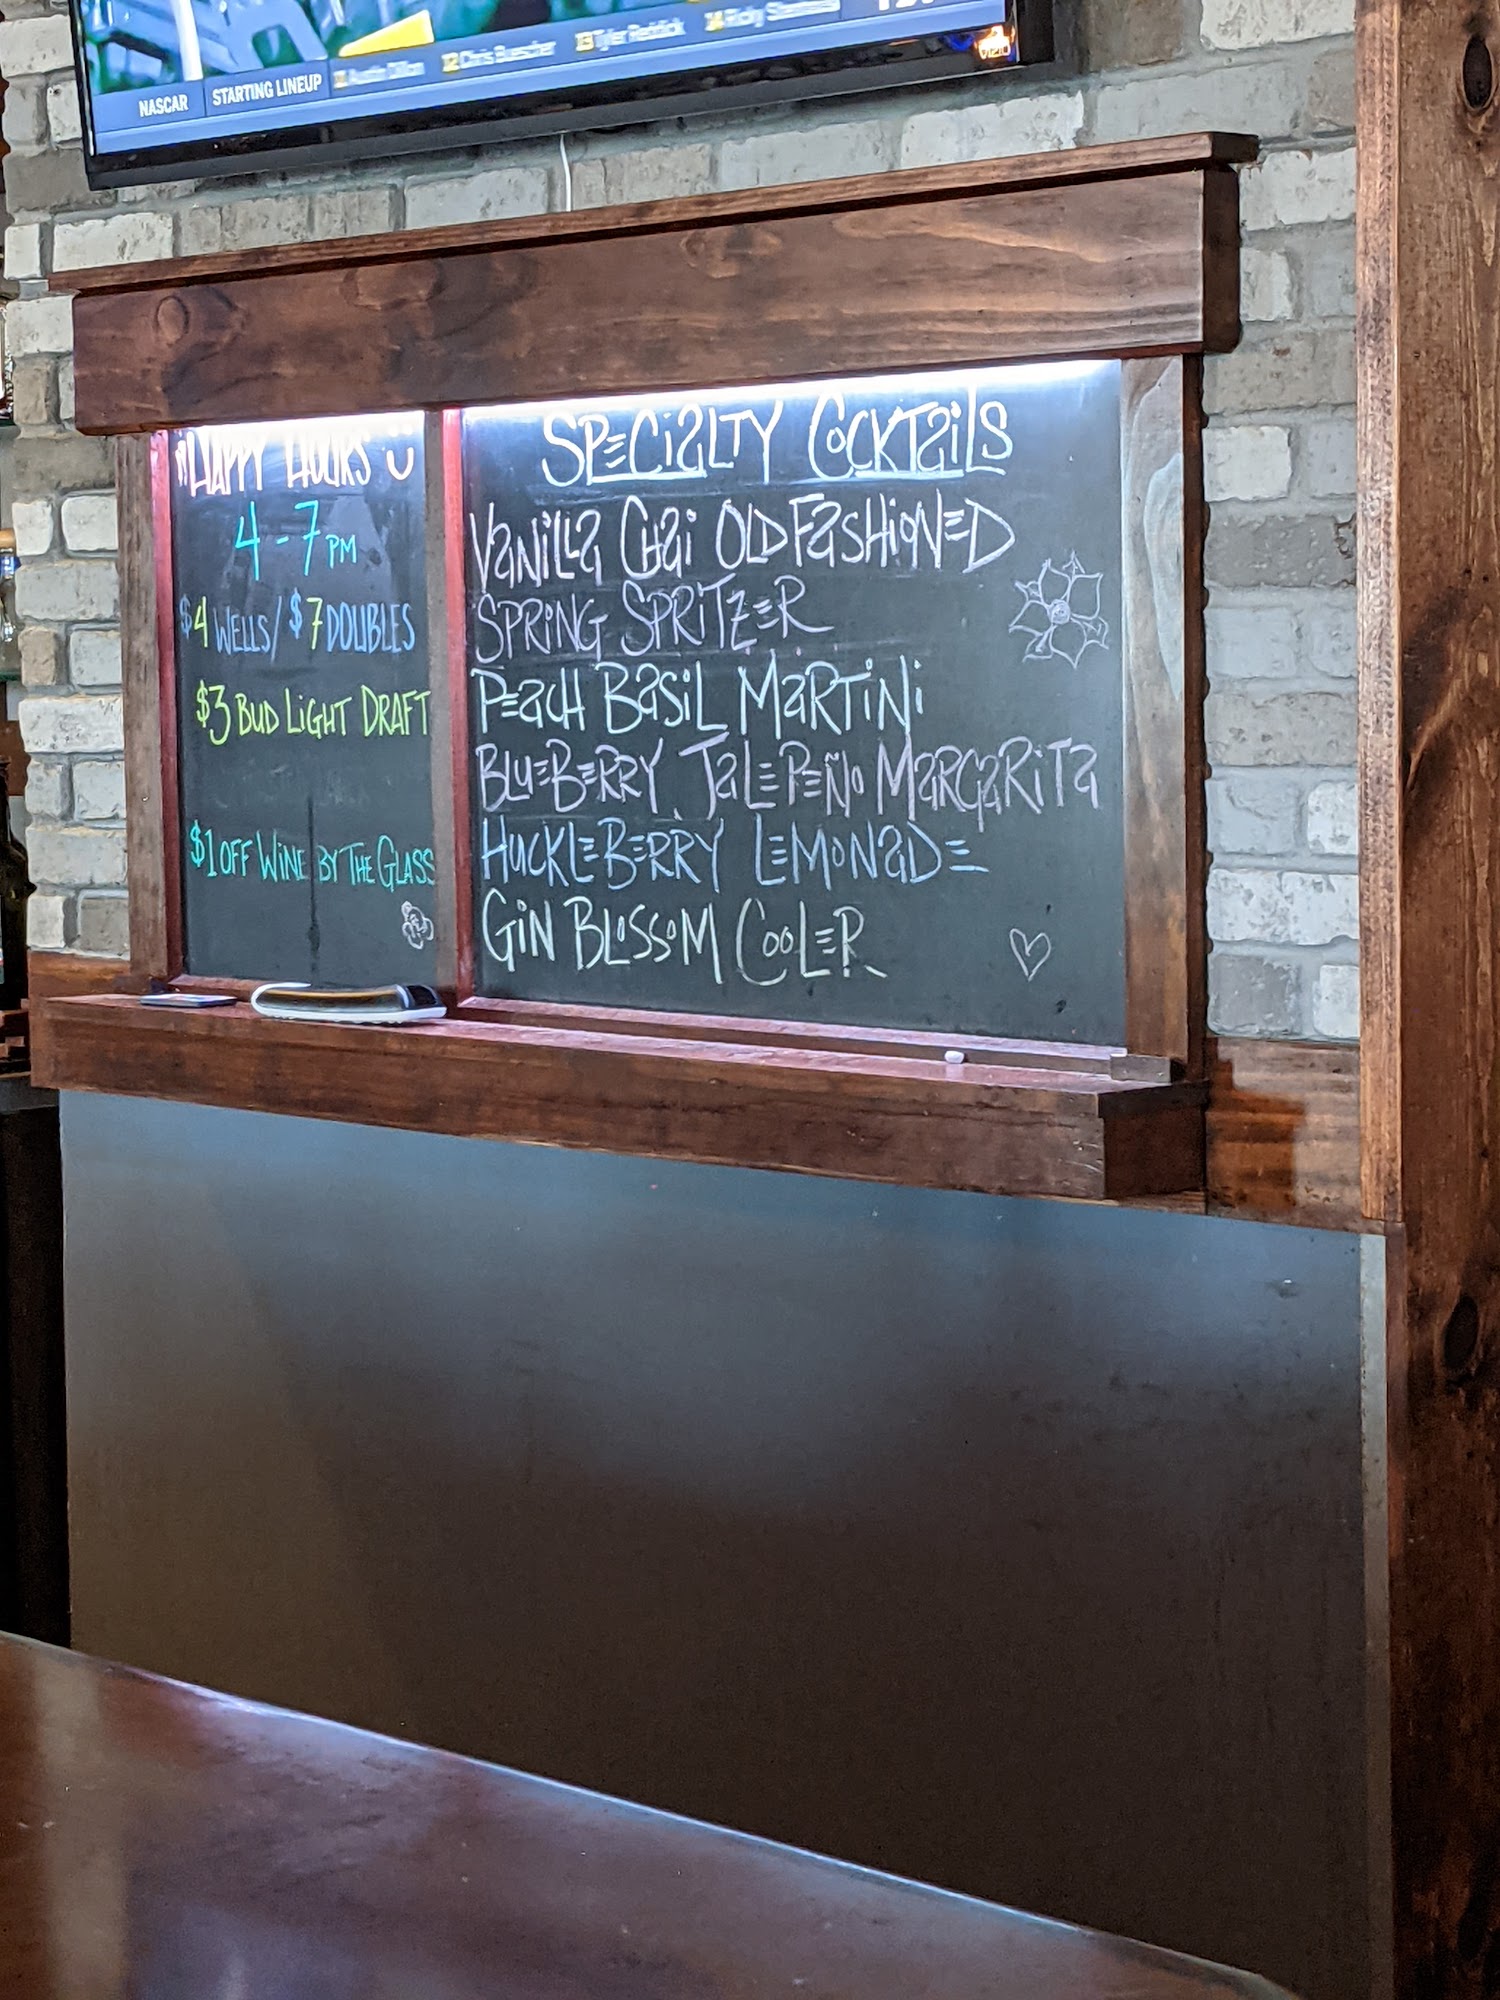 NASCAR STARTING LINEUP 11 Austin Dillon 12 Chris Buescher 13 Tyler Reddick 14 Ricky Stenhouse
HAPPY HOURS
4 - 7 PM
$4 WELLS / $7 DOUBLES
$3 BUD LIGHT DRAFT
$1 OFF WINE BY THE GLASS
SPECIALTY COCKTAILS
VANILLA CHAI OLD FASHIONED
SPRING SPRITZER
PEACH BASIL MARTINI
BLUEBERRY JALEPEÑO MARGARITA
HUCKLEBERRY LEMONADE
GIN BLOSSOM COOLER